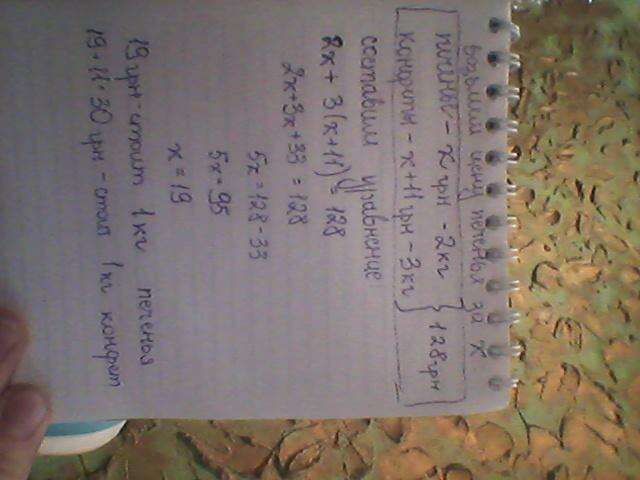 Возьмем цену печенья за х
печенье - х грн - 2кг } 128грн
конфеты - х+11 грн - 3кг
составим уравнение
2х + 3(х+11) = 128
2х+3х+33 = 128
5х = 128 - 33
5х = 95
х = 19
19 грн - стоит 1 кг печенья
19 + 11 = 30 грн - стоит 1 кг конфет